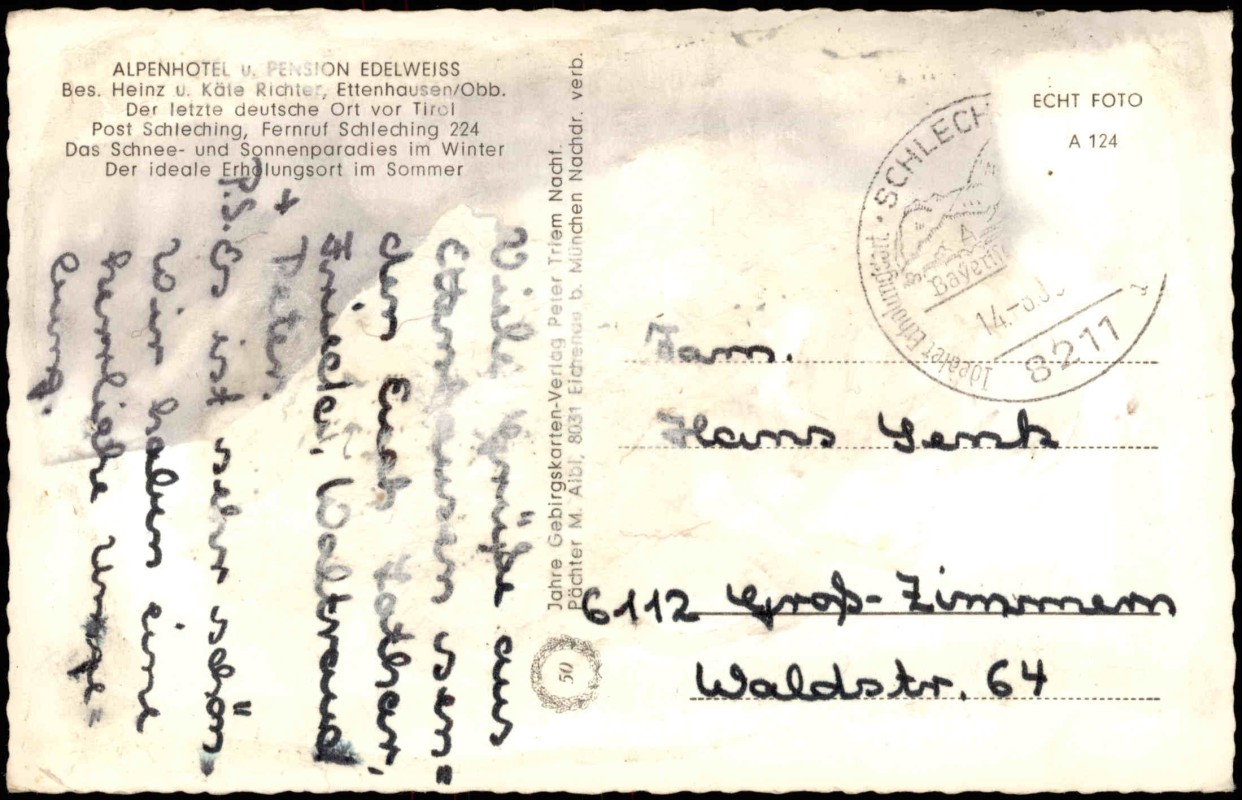 ALPENHOTEL u. PENSION EDELWEISS
Bes. Heinz u. Käte Richter, Ettenhausen/Obb.
Der letzte deutsche Ort vor Tirol
Post Schleching, Fernruf Schleching 224
Das Schnee- und Sonnenparadies im Winter
Der ideale Erholungsort im Sommer
Viele Grüße aus
Ettenhausen sen=
den Euch Lothar,
Friedel, Waltraud
+ Peter.
P.S. Es ist sehr schön
Wir haben eine
herrliche Umge=
bung.
Jahre Gebirgskarten-Verlag Peter Triem Nachf.
Pächter M. Aibl, 8031 Eichenau b. München Nachdr. verb.
50
ECHT FOTO
A 124
SCHLECH
Bayeri
Idealer Erholungs
14.-8
8211
Fam.
Hans
6112 Groß-Zimmern
Waldstr. 64